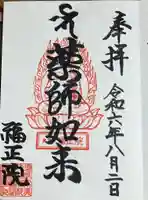 奉拝
令和六年八月二日
薬師如来
福正院